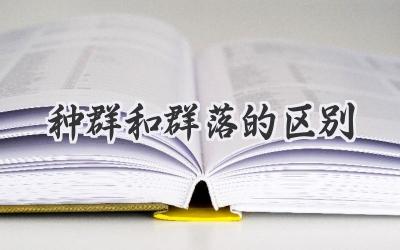 种群和群落的区别